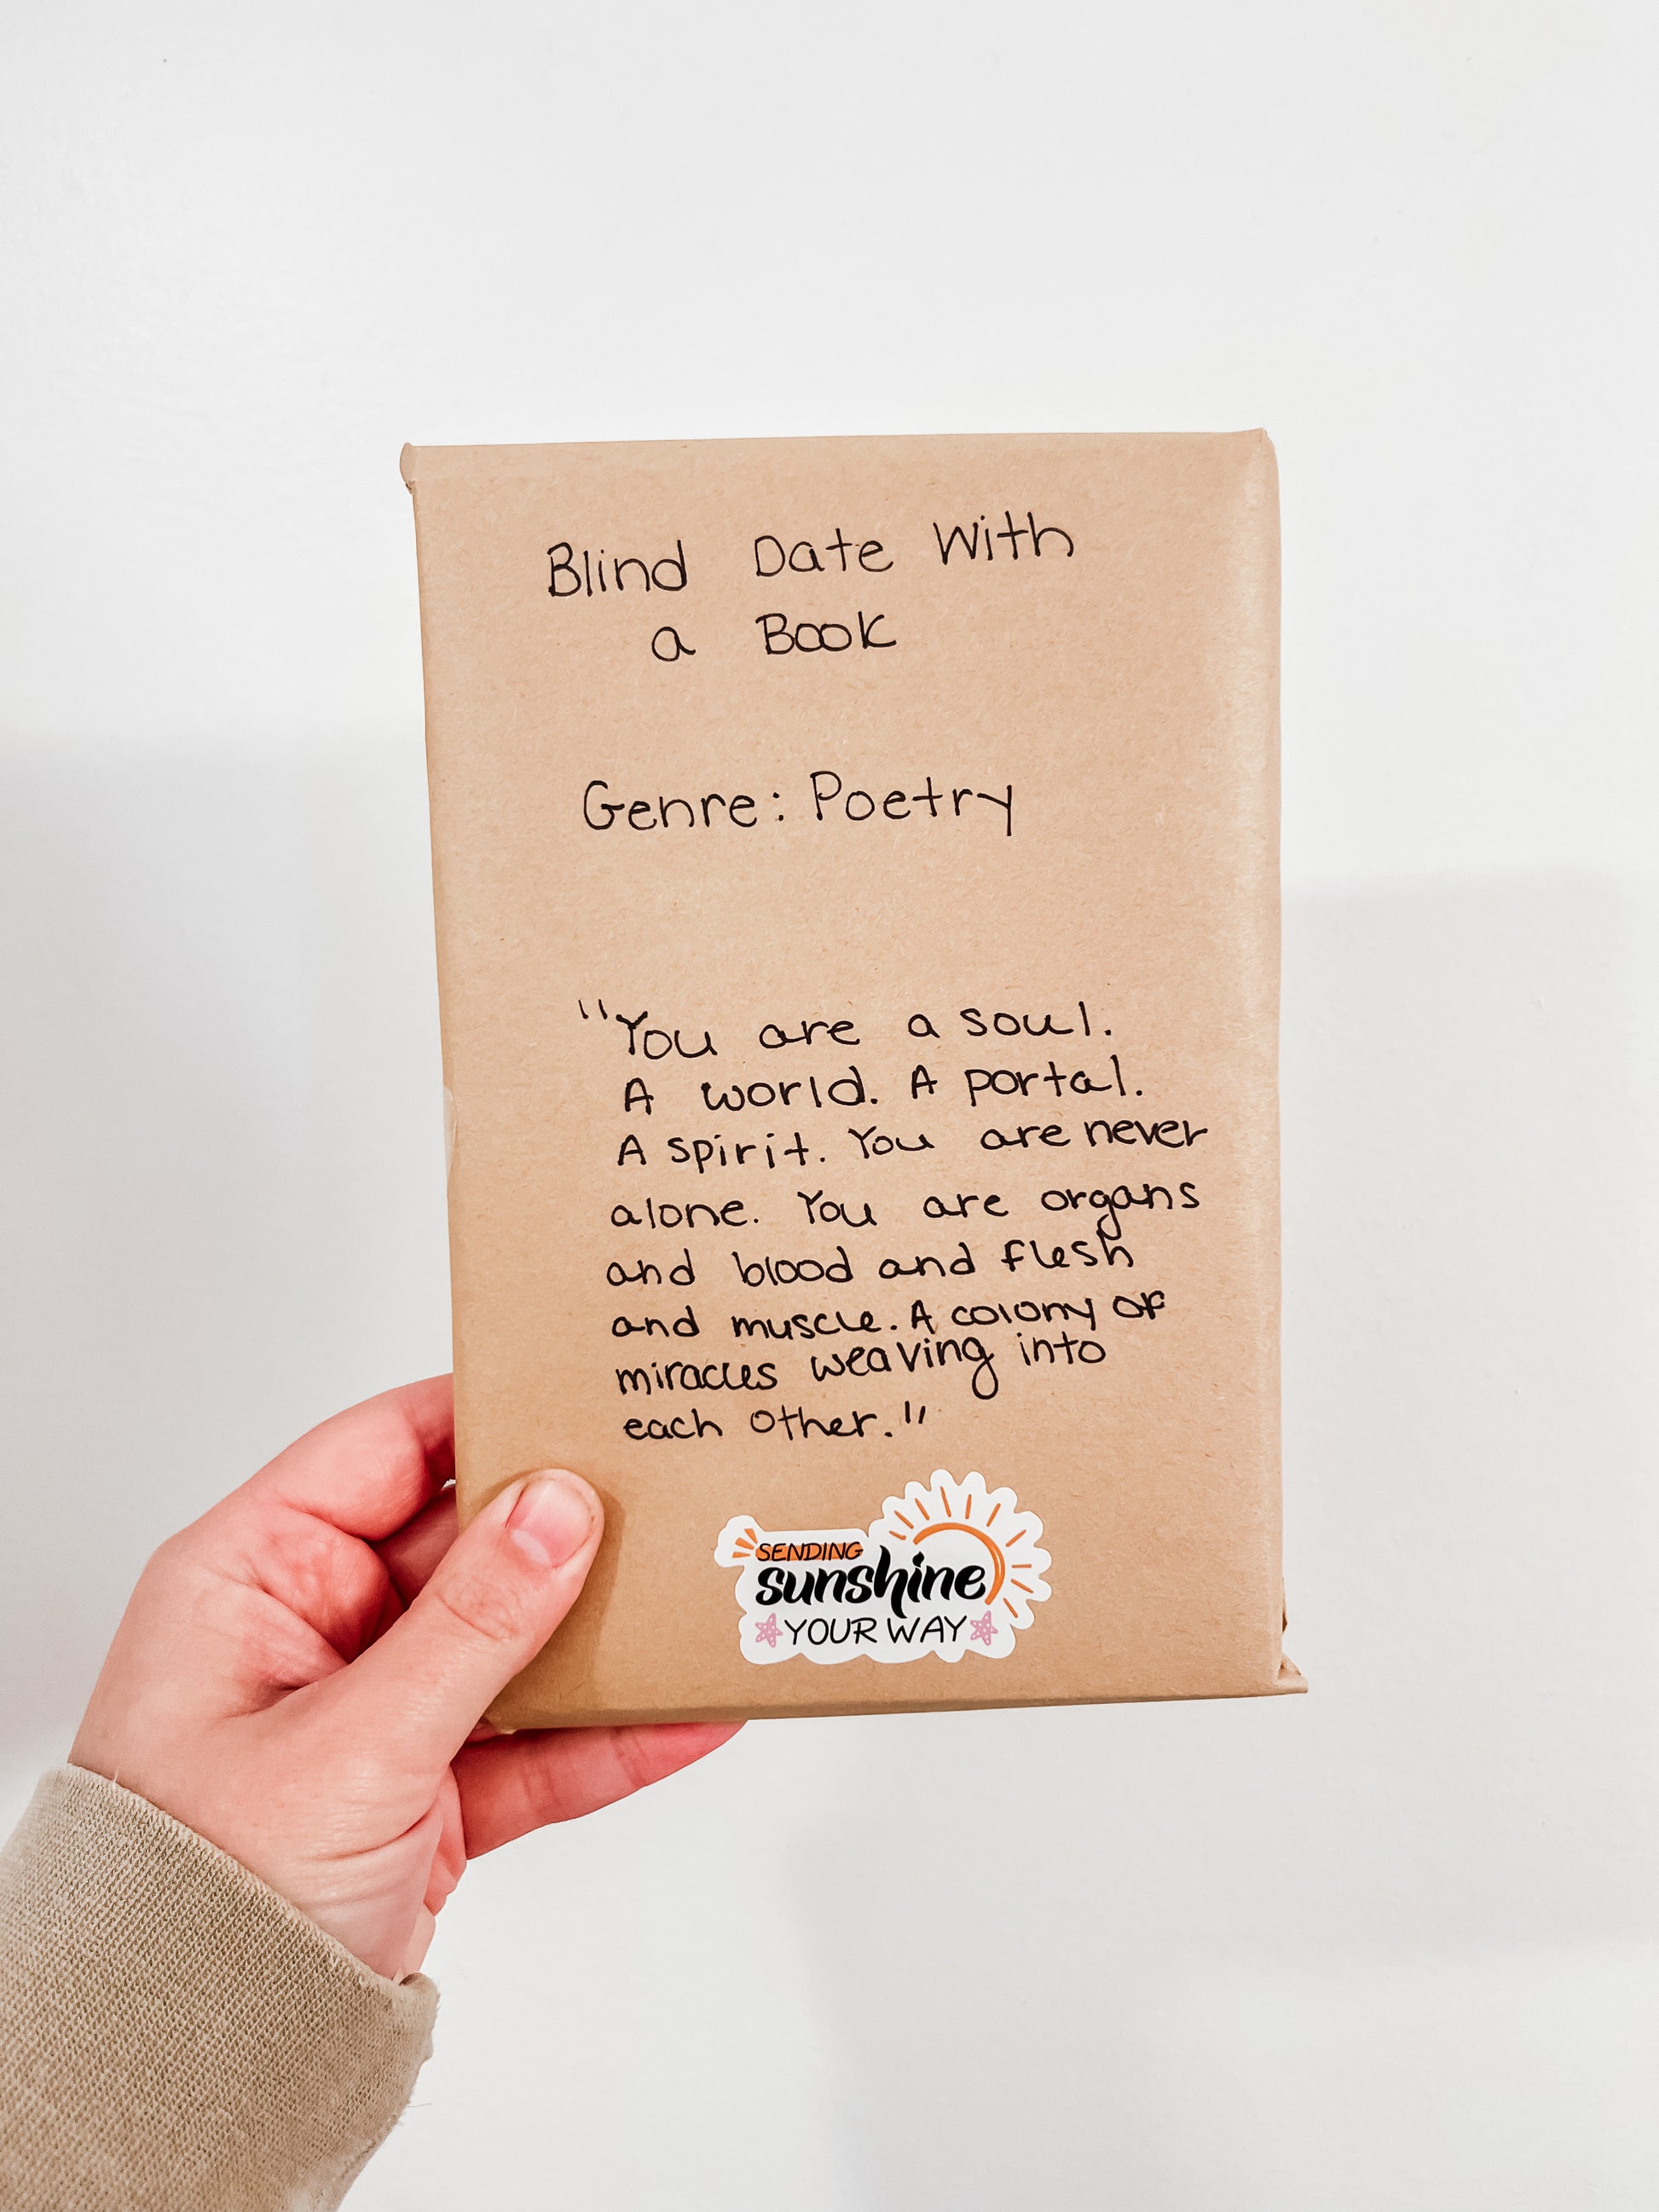 Blind Date With
a Book
Genre: Poetry
"You are a soul.
A world. A portal.
A spirit. You are never
alone. You are organs
and blood and flesh
and muscle. A colony of
miracles weaving into
each other."
SENDING
sunshine
YOUR WAY